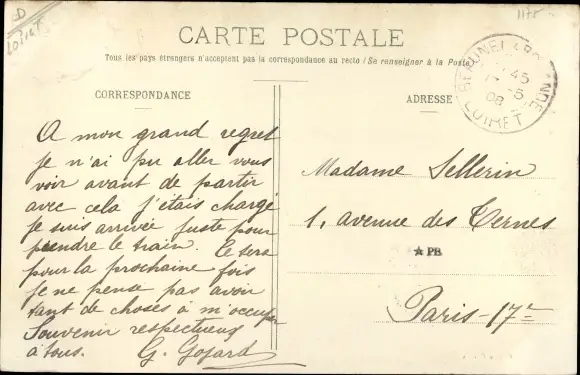 D
Loiret
1175
CARTE POSTALE
Tous les pays étrangers n'acceptent pas la correspondance au recto (Se renseigner à la Poste)
CORRESPONDANCE
A mon grand regret
je n'ai pu aller vous
voir avant de partir
avec cela j'étais chargé
je suis arrivée juste pour
prendre le train. Ce sera
pour la prochaine fois
je ne pense pas avoir
tant de choses à m'occuper
Souvenir respectueux
à tous. G. Gofard
ADRESSE
BEAUNE LA ROLANDE
45
5
08
LOIRET
Madame Sellerin
1, avenue des Ternes
★ PB
Paris-17e